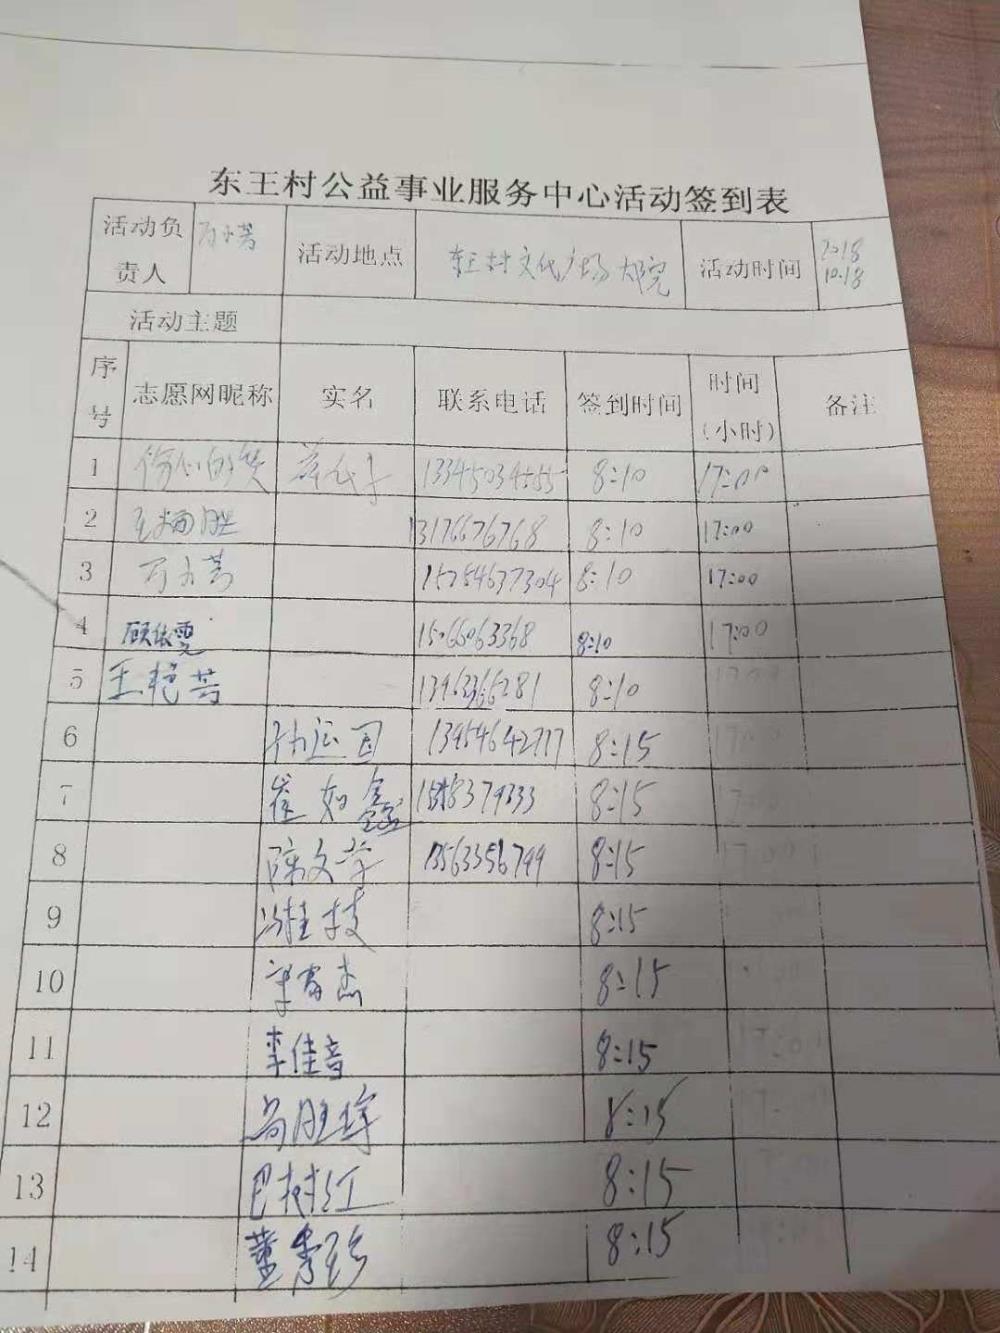 东王村公益事业服务中心活动签到表
活动负责人 万永芳 活动地点 东王村文化广场 大院 活动时间 2018 10.18
活动主题
序号 志愿网昵称 实名 联系电话 签到时间 时间(小时) 备注
1 8:10 17:00
2 13176676768 8:10 17:00
3 万永芳 15254637304 8:10 17:00
4 顾依雯 15066063368 8:10 17:00
5 王艳芳 13963366281 8:10
6 孙运国 13954642777 8:15
7 崔如鑫 8:15
8 陈文学 13563356799 8:15
9 冯桂枝 8:15
10 8:15
11 李佳音 8:15
12 8:15
13 巴树红 8:15
14 董秀珍 8:15